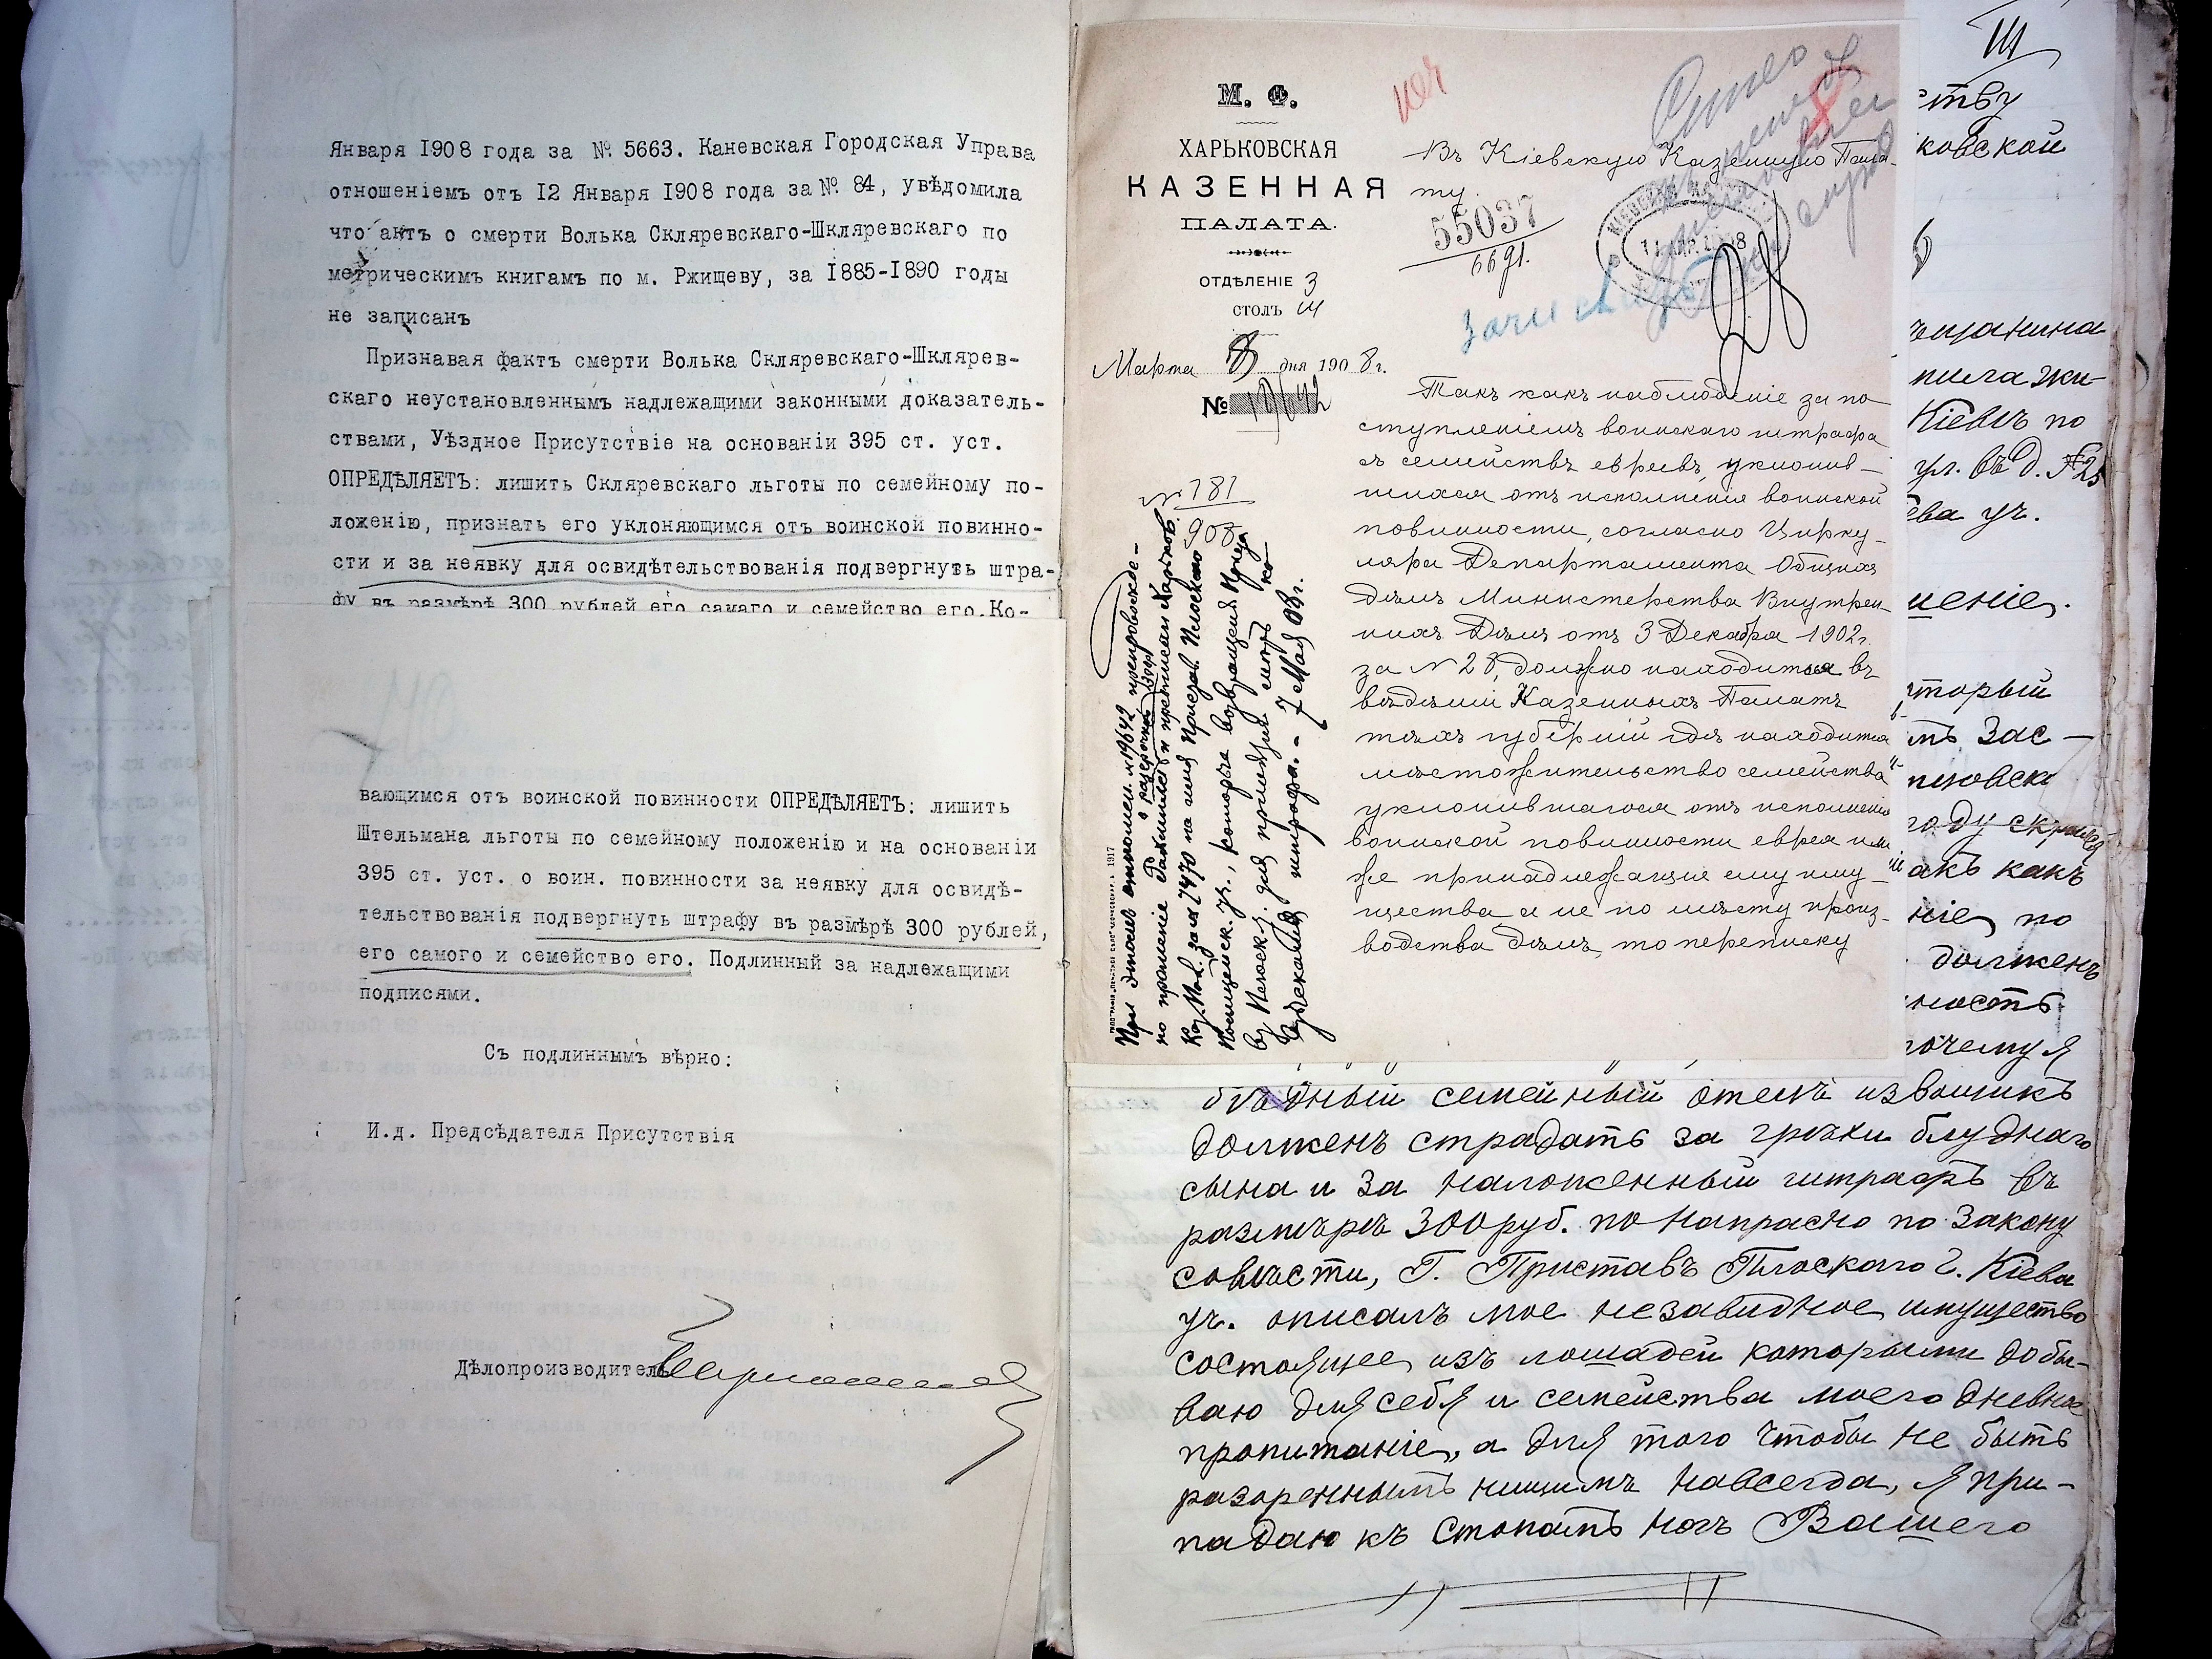 Января 1908 года за № 5663. Каневская Городская Управа
отношеніемъ отъ 12 Января 1908 года за № 84, увѣдомила
что актъ о смерти Волька Скляревскаго-Шкляревскаго по
метрическимъ книгамъ по м. Ржищеву, за 1885-1890 годы
не записанъ
Признавая фактъ смерти Волька Скляревскаго-Шклярев-
скаго неустановленнымъ надлежащими законными доказатель-
ствами, Уѣздное Присутствіе на основаніи 395 ст. уст.
ОПРЕДѢЛЯЕТЪ: лишить Скляревскаго льготы по семейному по-
ложенію, признать его уклоняющимся отъ воинской повинно-
сти и за неявку для освидѣтельствованія подвергнуть штра-
фу въ размѣрѣ 300 рублей его самаго и семейство его. Ко-
вающимся отъ воинской повинности ОПРЕДѢЛЯЕТЪ: лишить
Штельмана льготы по семейному положенію и на основаніи
395 ст. уст. о воин. повинности за неявку для освидѣ-
тельствованія подвергнуть штрафу въ размѣрѣ 300 рублей,
его самого и семейство его. Подлинный за надлежащими
подписями.
Съ подлиннымъ вѣрно:
И.д. Предсѣдателя Присутствія
Дѣлопроизводитель
М. Ф.
ХАРЬКОВСКАЯ
КАЗЕННАЯ
ПАЛАТА.
ОТДѢЛЕНІЕ 3
СТОЛЪ III
Марта 8 дня 1908 г.
№ 19642
№ 781
908
При этомъ отношен. №19642 препровожде-
но прошеніе и переписки Харьков.
Каз. Пал. за № 7470 на имя Пристав. Плоскаго
Полицейск. уч., которые возвращая
въ Плоск. уч. для
взысканія штрафа. - 7 Мая 08 г.
Въ Кіевскую Казенную Пала-
ту.
55037
6691.
Такъ какъ наблюденіе за по-
ступленіемъ воинскаго штрафа
съ семействъ евреевъ, уклонив-
шихся отъ исполненія воинской
повинности, согласно Цирку-
ляра Департамента Общихъ
Дѣлъ Министерства Внутрен-
нихъ Дѣлъ отъ 3 Декабря 1902 г.
за № 28, должно находиться въ
вѣдѣніи Казенныхъ Палатъ
тѣхъ губерній гдѣ находится
мѣстожительство семейства
уклонившагося отъ исполненія
воинской повинности еврея или
же принадлежащія ему иму-
щества а не по мѣсту произ-
водства дѣлъ, то переписку
ству
ковской
щанина
Кіевѣ по
ул. въ д. №25
ева уч.
шеніе.
торый
Зас-
году скрылся
акъ какъ
ніе, по
долженъ
ность
почему я
бѣдный семейный отецъ извощикъ
долженъ страдать за грѣхи блуднаго
сына и за наложенный штрафъ въ
размѣрѣ 300 руб. по напрасно по закону
совѣсти, Г. Приставъ Плоскаго г. Кіева
уч. описалъ мое незавидное имущество
состоящее изъ лошадей которыми добы-
ваю для себя и семейства моего дневное
пропитаніе, а для того чтобы не быть
разореннымъ нищимъ навсегда, я при-
падаю къ стопамъ ногъ Вашего